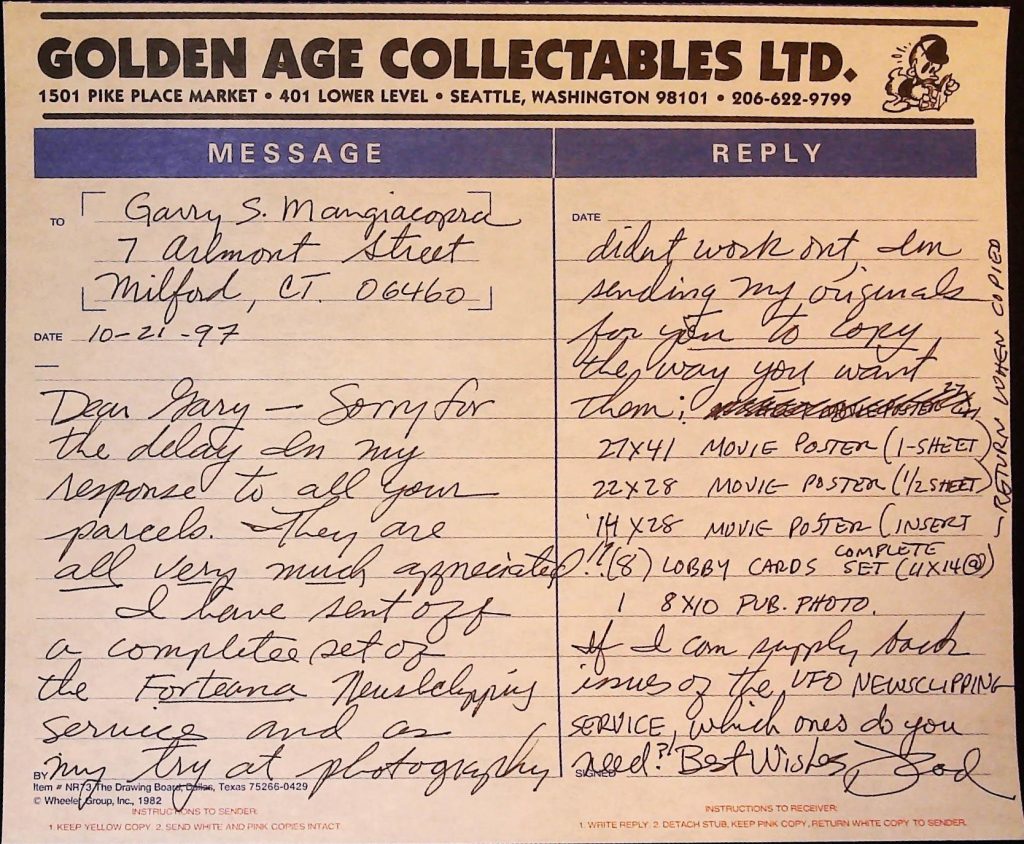 GOLDEN AGE COLLECTABLES LTD.
1501 PIKE PLACE MARKET • 401 LOWER LEVEL • SEATTLE, WASHINGTON 98101 • 206-622-9799
MESSAGE
TO Garry S. Mangiacopra
7 Arlmont Street
Milford, CT. 06460
DATE 10-21-97
Dear Gary — Sorry for
the delay in my
response to all your
parcels. They are
all very much appreciated!!
I have sent off
a complete set of
the Forteana Newsclipping
service and as
my try at photography
BY
Item # NR73 The Drawing Board, Dallas, Texas 75266-0429
© Wheeler Group, Inc., 1982
INSTRUCTIONS TO SENDER:
1. KEEP YELLOW COPY. 2. SEND WHITE AND PINK COPIES INTACT.
REPLY
DATE
didnt work out, Im
sending my originals
for you to copy
the way you want
them:
27X41 MOVIE POSTER (1-SHEET)
22X28 MOVIE POSTER (1/2 SHEET)
14X28 MOVIE POSTER (INSERT
(8) LOBBY CARDS COMPLETE SET (11X14@)
1 8X10 PUB. PHOTO.
— RETURN WHEN COPIED
If I can supply back
issues of the UFO NEWSCLIPPING
SERVICE, which ones do you
need? Best Wishes, Rod
SIGNED
INSTRUCTIONS TO RECEIVER:
1. WRITE REPLY. 2. DETACH STUB, KEEP PINK COPY, RETURN WHITE COPY TO SENDER.